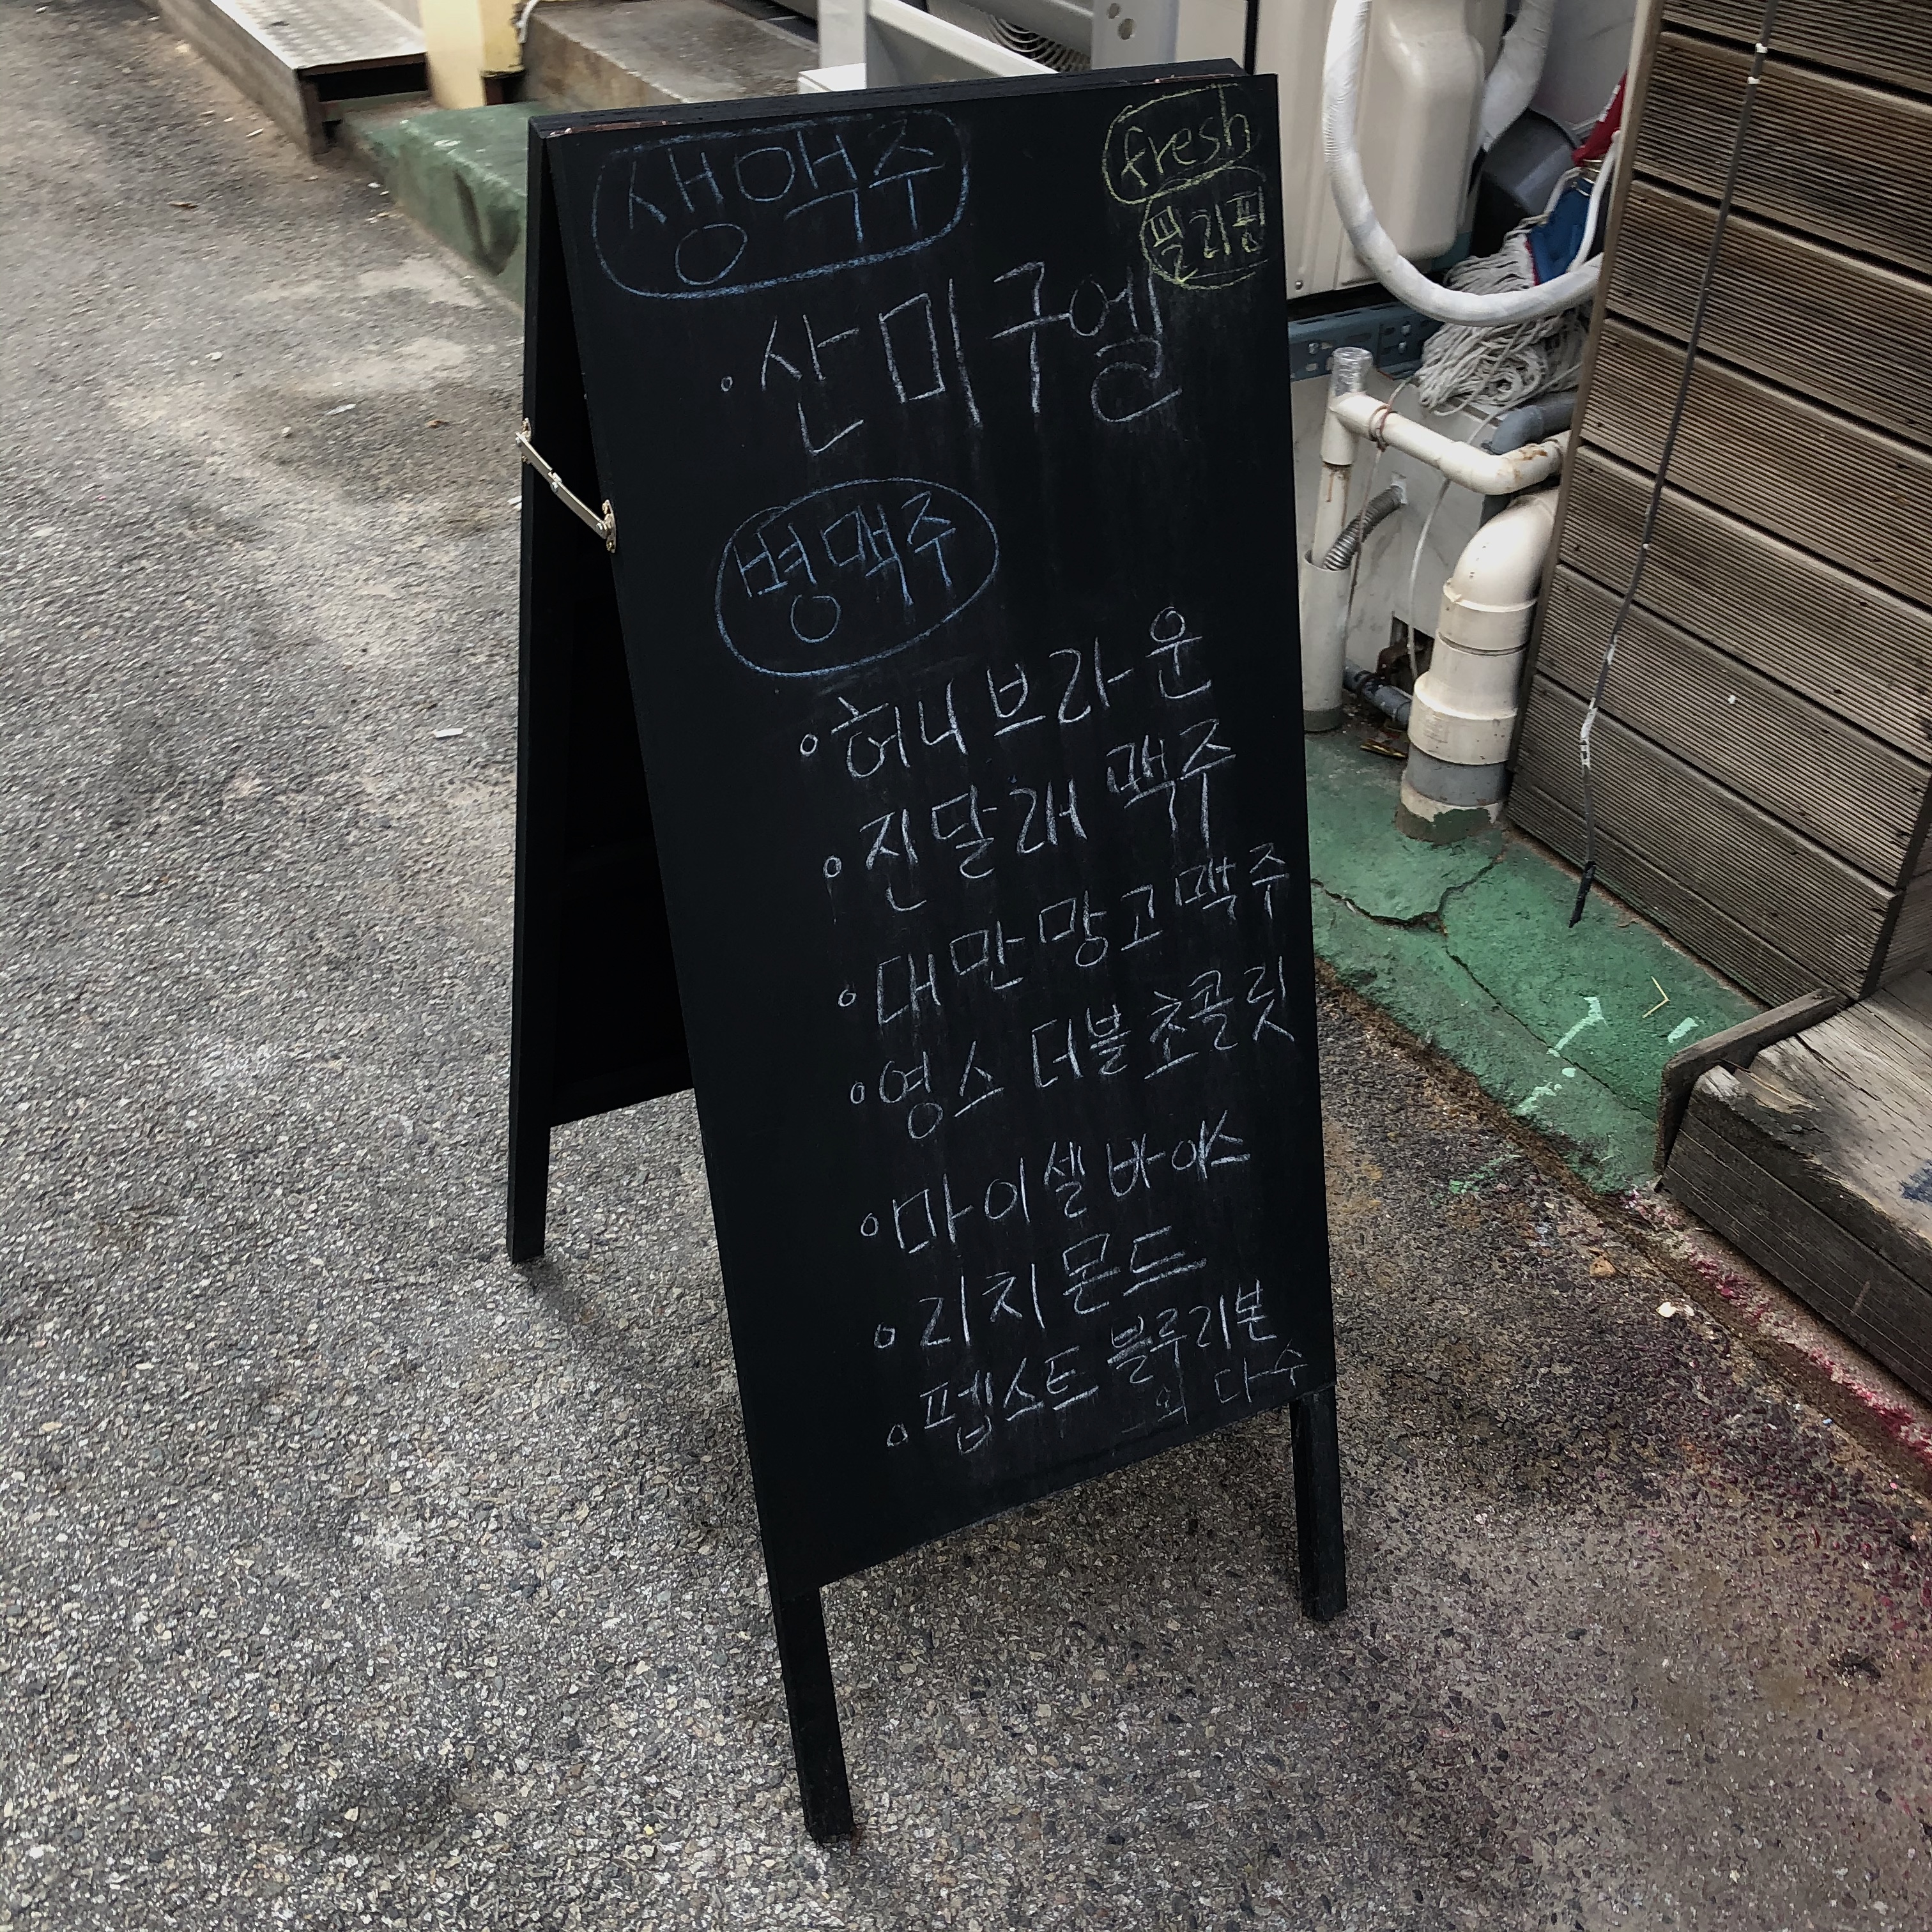 생맥주
fresh
필리핀
· 산미구엘
병맥주
· 허니브라운
· 진달래 맥주
· 대만망고맥주
· 영스 더블 초콜릿
· 마이셀 바이스
· 리치몬드
· 펩스트 블루리본
외 다수